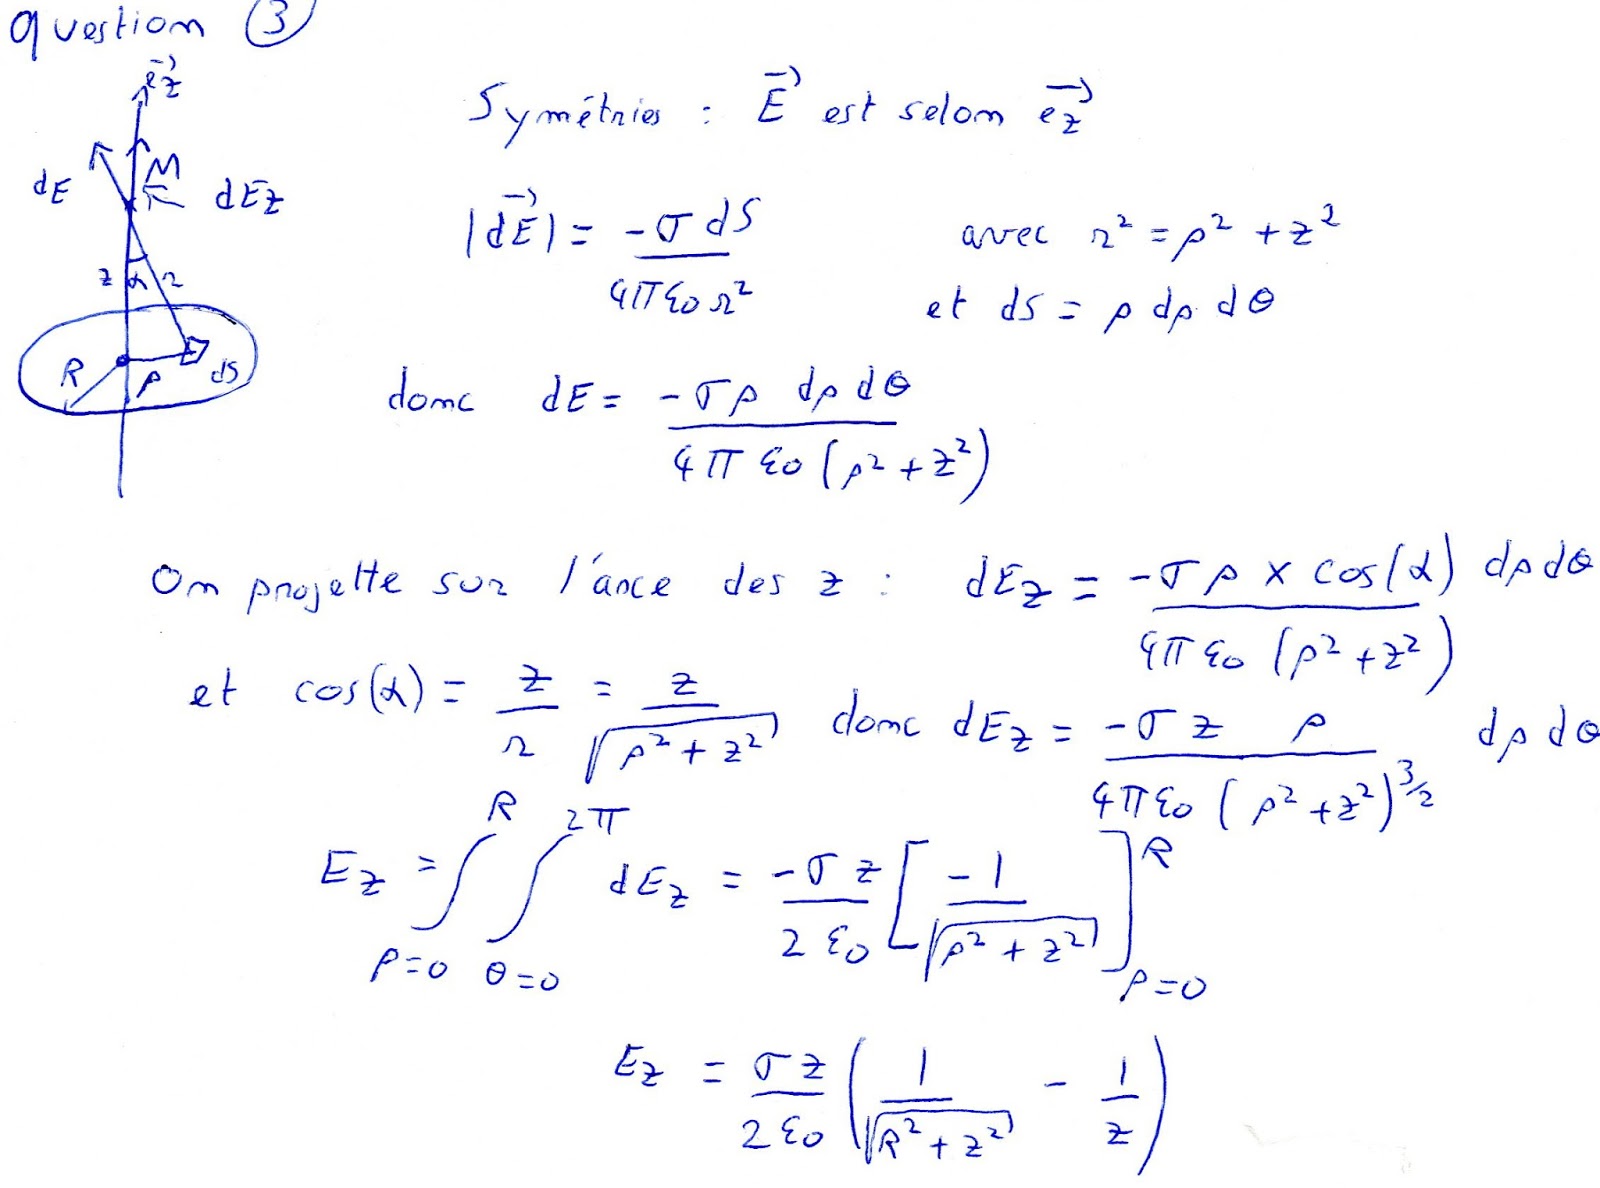 question ③
e⃗z
dE M dEz
z α r
R ρ dS
Symétries : E⃗ est selon e⃗z
|dE⃗| = -σ dS / 4πε0 r² avec r² = ρ² + z²
et dS = ρ dρ dθ
donc dE = -σρ dρ dθ / 4π ε0 (ρ² + z²)
On projette sur l'axe des z : dEz = -σ ρ × cos(α) dρ dθ / 4π ε0 (ρ² + z²)
et cos(α) = z / r = z / √(ρ² + z²) donc dEz = -σ z ρ / 4π ε0 (ρ² + z²)^3/2 dρ dθ
Ez = ∫_ρ=0^R ∫_θ=0^2π dEz = -σ z / 2 ε0 [-1 / √(ρ² + z²)]_ρ=0^R
Ez = σ z / 2 ε0 (1 / √(R² + z²) - 1 / z)